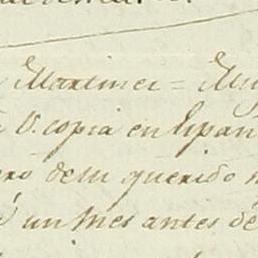 Martinez = Muy
V. copia en Españ
ro de su querido
un mes antes de